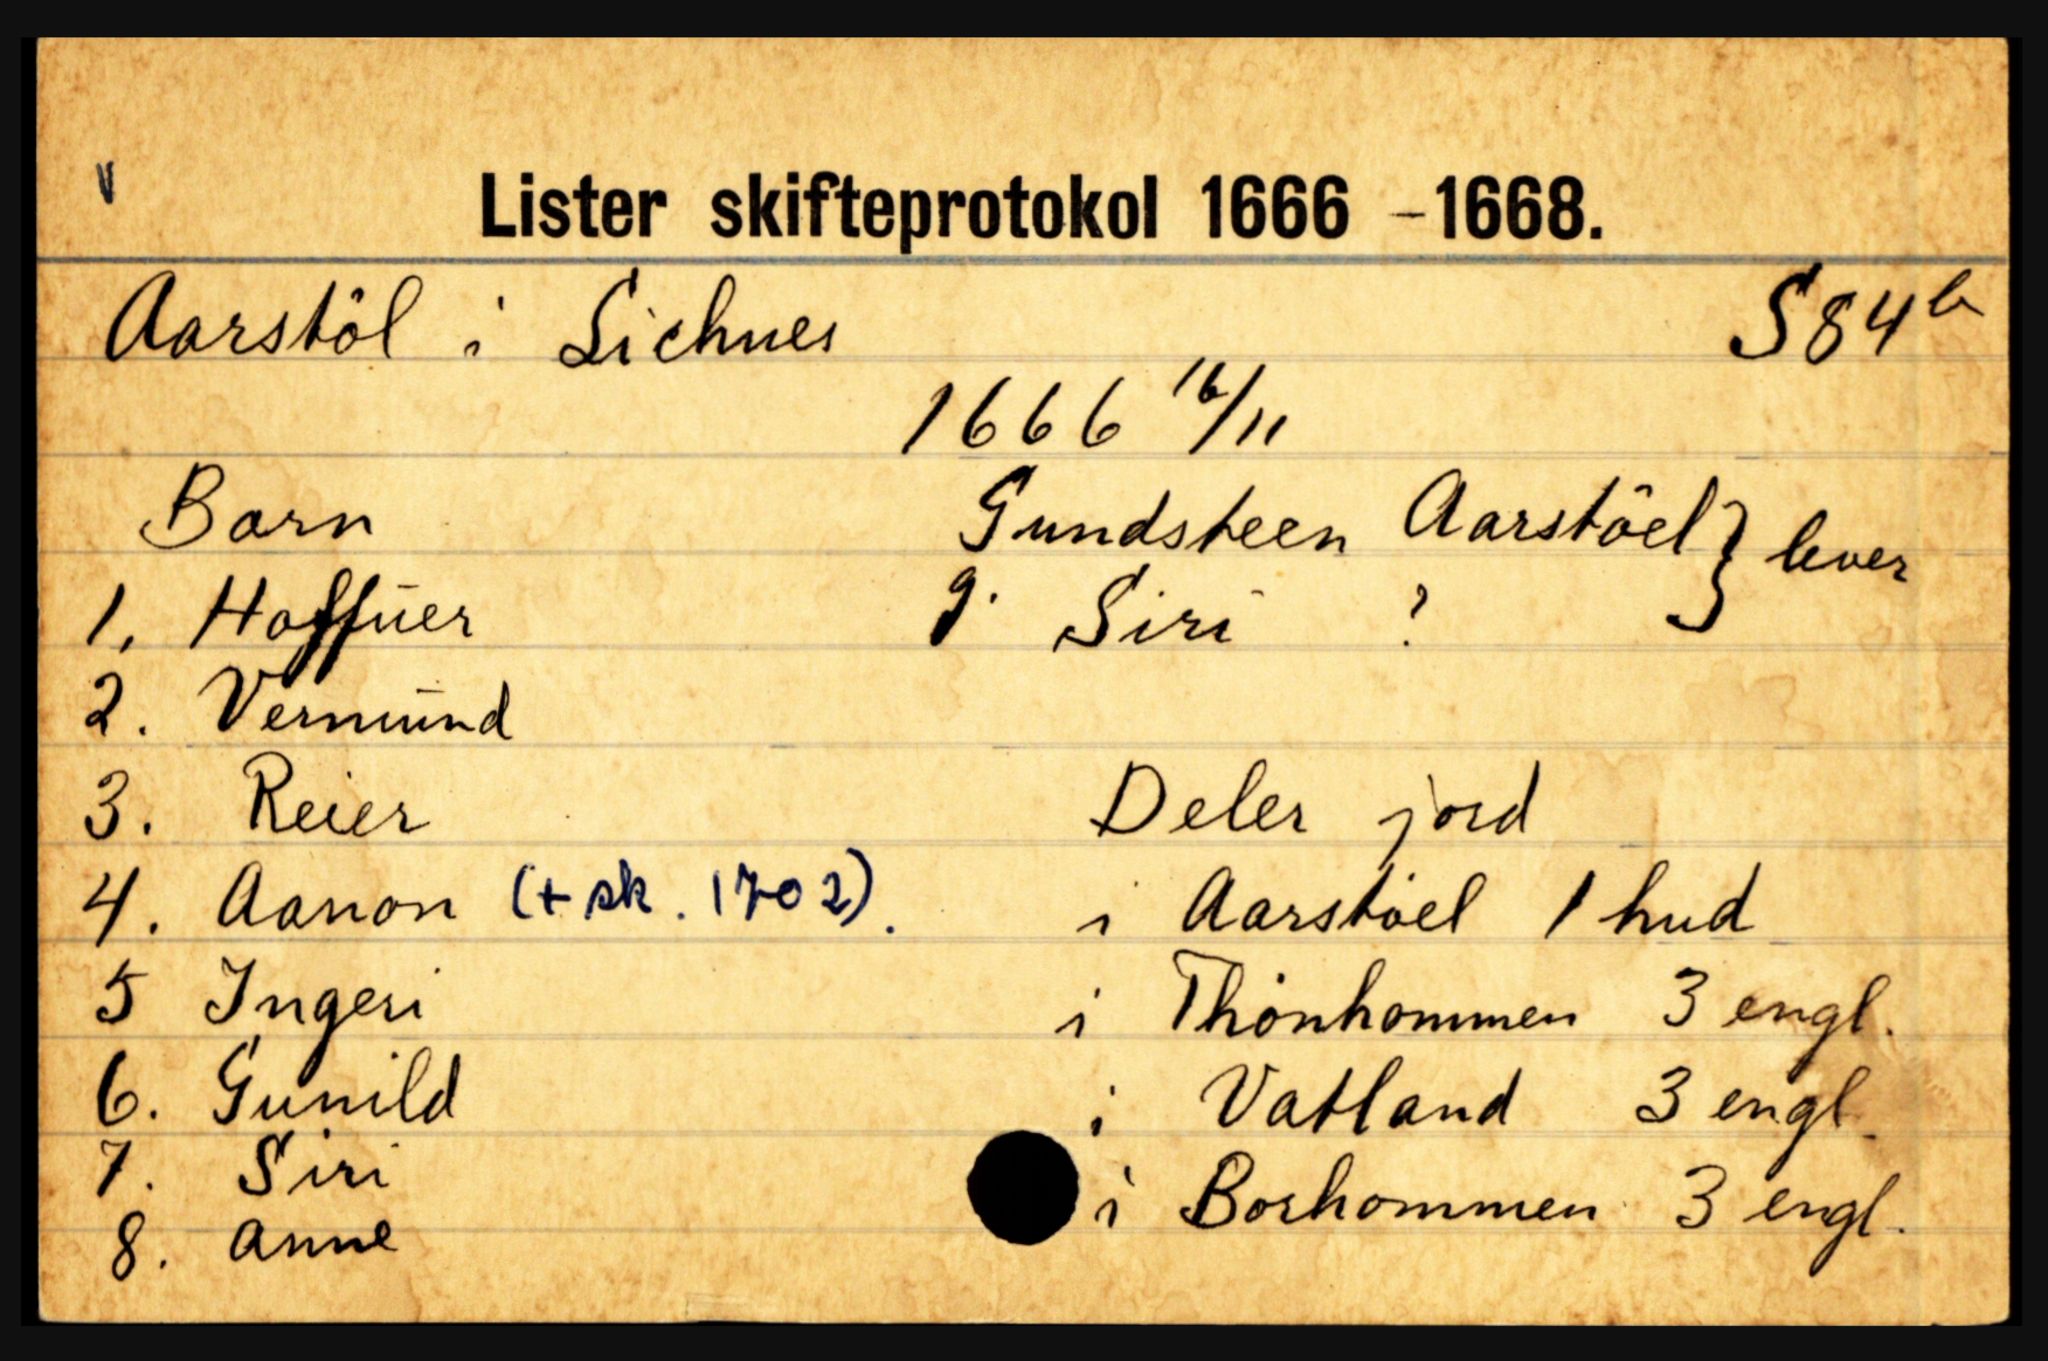 v
Lister skifteprotokol 1666 – 1668.
Aarstöl i Sichnes S 84 b
1666 16/11
Barn Gundsteen Aarstöel } lever
1, Hoffūer g. Siri ?
2. Vermūnd
3. Reier Deler jord
4. Aanon (+ sk. 1702). i Aarstöel 1 hud
5 Ingeri i Thönhommen 3 engl.
6. Gunild i Vatland 3 engl.
7. Siri i Borhommen 3 engl.
8. Anne